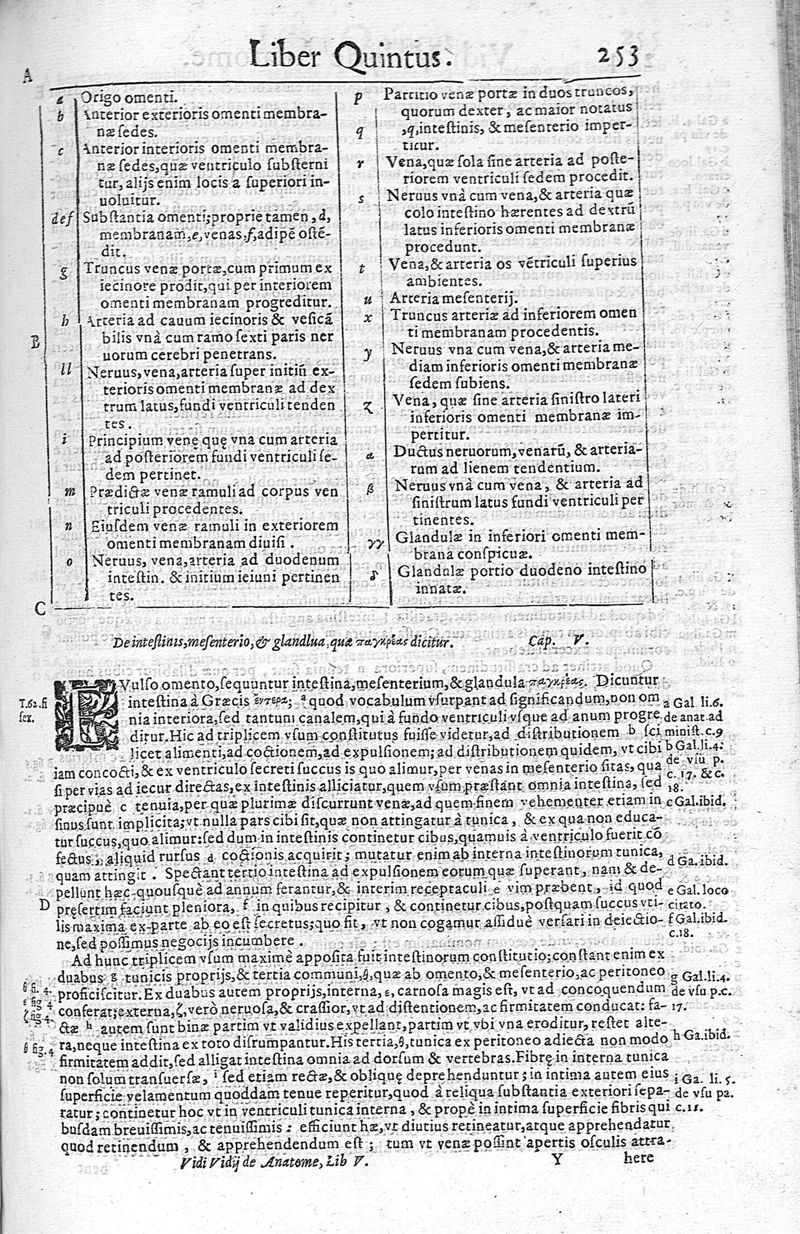 Liber Quintus. 253
A
a Origo omenti.
b Anterior exterioris omenti membra-
næ sedes.
c Anterior interioris omenti membra-
næ sedes, quæ ventriculo substerni
tur, alijs enim locis a superiori in-
uoluitur.
def Substantia omenti; proprie tamen, d,
membranam, e, venas, f, adipē ostē-
dit.
g Truncus venæ portæ, cum primum ex
iecinore prodit, qui per interiorem
omenti membranam progreditur.
h Arteria ad cauum iecinoris & vesicā
B
bilis vnà cum ramo sexti paris ner
uorum cerebri penetrans.
ll Neruus, vena, arteria super initiū ex-
terioris omenti membranæ ad dex
trum latus, fundi ventriculi tenden
tes.
i Principium venę quę vna cum arteria
ad posteriorem fundi ventriculi se-
dem pertinet.
m Prædictæ venæ ramuli ad corpus ven
triculi procedentes.
n Eiusdem venæ ramuli in exteriorem
omenti membranam diuisi.
o Neruus, vena, arteria ad duodenum
intestin. & initium ieiuni pertinen
tes.
C
p Partitio venæ portæ in duos truncos,
quorum dexter, ac maior notatus
q ,q, intestinis, & mesenterio imper-
titur.
r Vena, quæ sola sine arteria ad poste-
riorem ventriculi sedem procedit.
s Neruus vnà cum vena, & arteria quæ
colo intestino hærentes ad dextrū
latus inferioris omenti membranæ
procedunt.
t Vena, & arteria os vētriculi superius
ambientes.
u Arteria mesenterij.
x Truncus arteriæ ad inferiorem omen
ti membranam procedentis.
y Neruus vna cum vena, & arteria me-
diam inferioris omenti membranæ
sedem subiens.
z Vena, quæ sine arteria sinistro lateri
inferioris omenti membranæ im-
pertitur.
a Ductus neruorum, venarū, & arteria-
rum ad lienem tendentium.
β Neruus vnà cum vena, & arteria ad
sinistrum latus fundi ventriculi per
tinentes.
γγ Glandulæ in inferiori omenti mem-
brana conspicuæ.
δ Glandulæ portio duodeno intestino
innatæ.
De intestinis, mesenterio, & glandlua, quæ παγκρέας dicitur. Cap. V.
EVulso omento, sequuntur intestina, mesenterium, & glandula παγκρέας. Dicuntur
T.62. fi
sex.
intestina à Græcis ἔντερα; a quod vocabulum vsurpant ad significandum, non om
a Gal li.6.
nia interiora, sed tantum canalem, qui à fundo ventriculi vsque ad anum progre
de anat. ad
ditur. Hic ad triplicem vsum constitutus fuisse videtur, ad distributionem b sci
minist. c.9
licet alimenti, ad coctionem, ad expulsionem; ad distributionem quidem, vt cibi
b Gal li.4.
iam concocti, & ex ventriculo secreti succus is quo alimur, per venas in mesenterio sitas, qua
de vsu p.
c. 17. & c.
si per vias ad iecur directas, ex intestinis alliciatur, quem vsum præstant omnia intestina, sed
18.
præcipuè c tenuia, per quæ plurimæ discurrunt venæ, ad quem finem vehementer etiam in
c Gal. ibid.
sinus sunt implicita; vt nulla pars cibi sit, quæ non attingatur à tunica, & ex qua non educa-
tur succus, quo alimur: sed dum in intestinis continetur cibus, quamuis à ventriculo fuerit cō
fectus, aliquid rursus d coctionis acquirit; mutatur enim ab interna intestinorum tunica,
d Ga. ibid.
quam attingit. Spectant tertio intestina ad expulsionem eorum quæ superant, nam & de-
pellunt hæc quousquè ad annum ferantur, & interim receptaculi e vim præbent, id quod
e Gal. loco
D
pręsertim faciunt pleniora, f in quibus recipitur, & continetur cibus, postquam succus vti-
citato.
lis maxima ex parte ab eo est secretus; quo fit, vt non cogamur assiduè versari in deiectio-
f Gal. ibid.
c.18.
ne, sed possimus negocijs incumbere.
Ad hunc triplicem vsum maximè apposita fuit intestinorum constitutio; constant enim ex
duabus g tunicis proprijs, & tertia communi, θ, quæ ab omento, & mesenterio, ac peritoneo
g Gal. li.4.
proficiscitur. Ex duabus autem proprijs, interna, ε, carnosa magis est, vt ad concoquendum
de vsu p. c.
conferat; externa, ζ, verò neruosa, & crassior, vt ad distentionem, ac firmitatem conducat: fa-
17.
ctæ h autem sunt binæ partim vt validius expellant, partim vt vbi vna eroditur, restet alte-
h Ga. ibid.
ra, neque intestina ex toto disrumpantur. His tertia, θ, tunica ex peritoneo adiecta non modo
firmitatem addit, sed alligat intestina omnia ad dorsum & vertebras. Fibrę in interna tunica
non solum transuersæ, i sed etiam rectæ, & obliquę deprehenduntur; in intima autem eius
i Ga. li. 5.
superficie velamentum quoddam tenue reperitur, quod à reliqua substantia exteriori sepa-
de vsu pa.
ratur; continetur hoc vt in ventriculi tunica interna, & propè in intima superficie fibris qui
c.11.
busdam breuissimis, ac tenuissimis: efficiunt hæ, vt diutius retineatur, atque apprehendatur
quod retinendum, & apprehendendum est; tum vt venæ possint apertis osculis attra-
Vidi Vidij de Anatome, Lib V. Y here